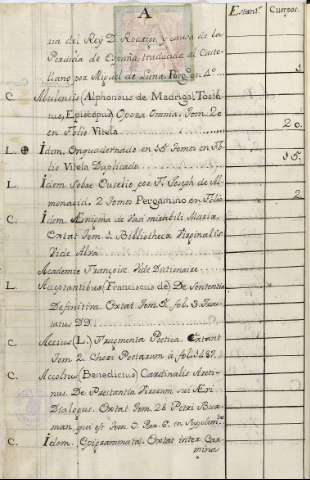 A
Estant.ˢ Cuerpos.
ria del Rey D. Rodrigo y causa de la
Perdida de España traducida al Caste-
llano por Miguel de Luna. Perg.º en 4º
C. Abulensis (Alphonsus de Madrigal Tosta-
tus, Episcopus) Opera Omnia. Tom. 20
en Folio Vitela 20.
L. Idem. Enquadernado en 15 Tomos en Fo-
lio Vitela Duplicado 15.
L. Idem. Sobre Eusebio por F. Joseph de Al-
monacid. 2 Tomos Pergamino en Folio 2
C. Idem. Ænigma de Maria
Extat Tom. 1. Bibliotheca Virginalis
Vide Alva
Academie Françoise. Vide Dictionaire
L. Accoltantibus (Franciscus de) De Sententia
Definitiva. Extat Tom. fol. 3. Trac-
tatus DD.
C. Accius (L.) Fragmenta Poetica. Extant
Tom. 2. Chori Poetarum à fol. 1487.
C. Accoltus (Benedictus) Cardinalis Areti-
nus. De Præstantia Virorum sui Ævi
Dialogus. Extat. Tom. Petri Bur-
man, qui est Tom.
C. Idem. Epigrammata. Extat inter Car-
mina